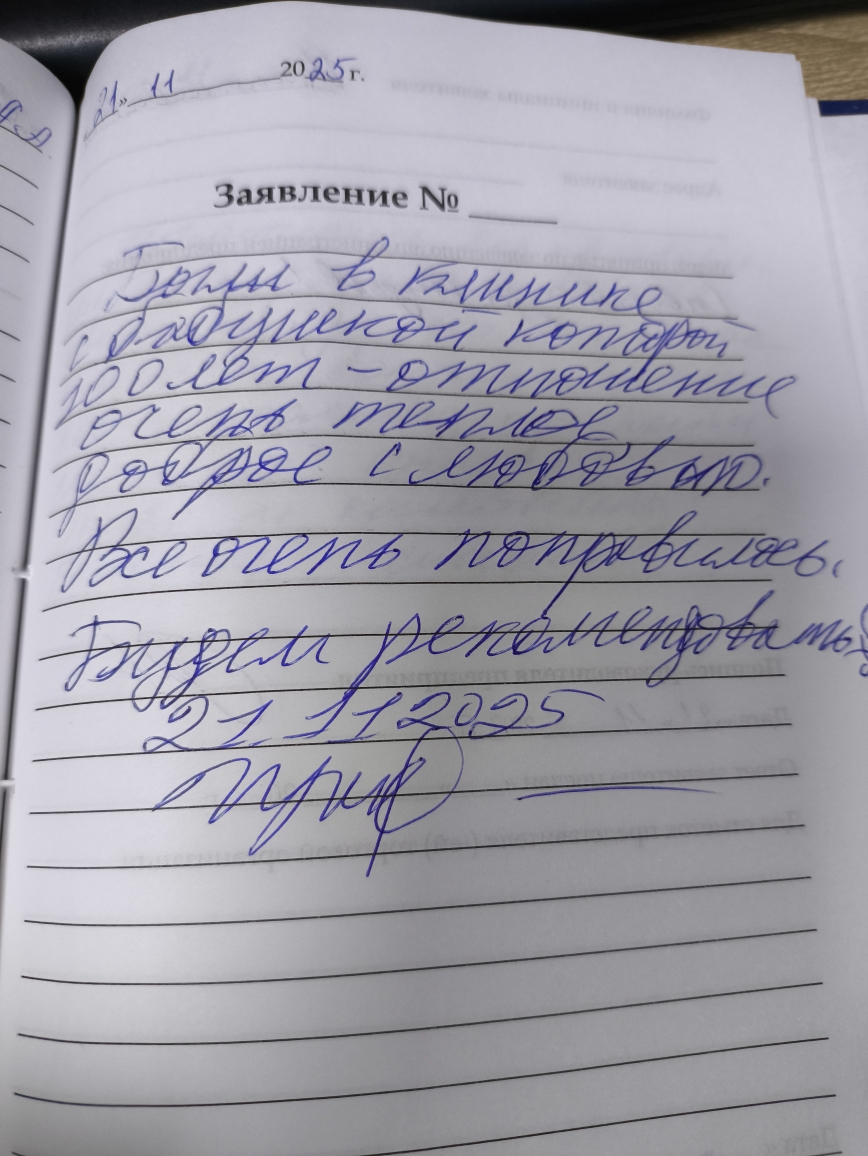 21» 11 2025 г.
Заявление № ____
Были в клинике
с бабушкой которой
100 лет – отношение
очень теплое,
доброе с любовью.
Все очень понравилось.
Будем рекомендовать
21.11 2025